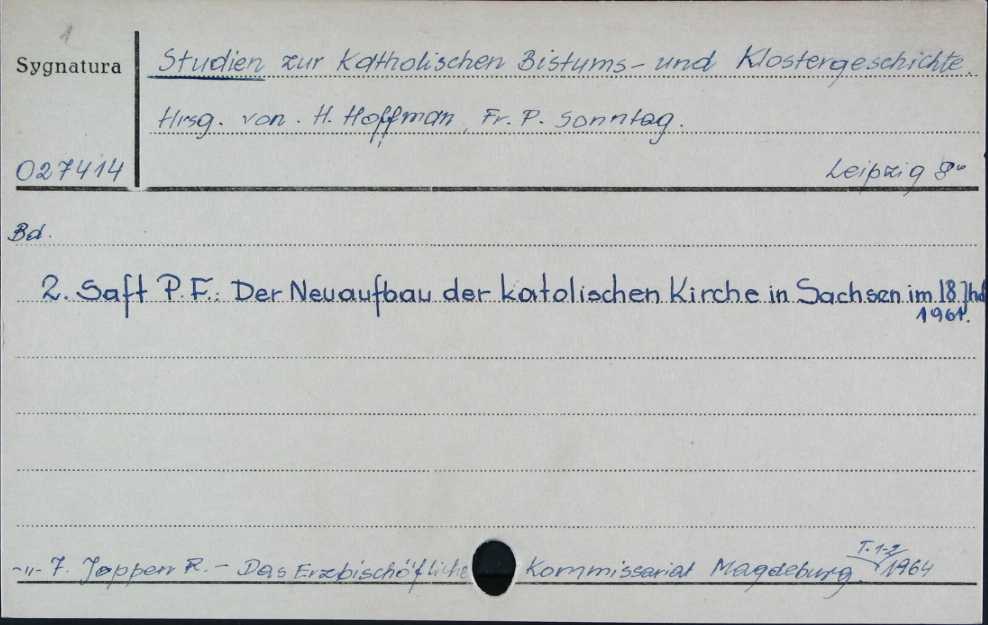 1
Sygnatura
Studien zur Katholischen Bistums- und Klostergeschichte.
Hrsg. von. H. Hoffman, Fr. P. Sonntag.
027414
Leipzig 8°
Bd.
2. Saft P. F.: Der Neuaufbau der katolischen Kirche in Sachsen im 18 Jhd
1961.
T. 1-2
-"- 7. Joppen R. - Das Erzbischöfliche Kommissariat Magdeburg. 1964